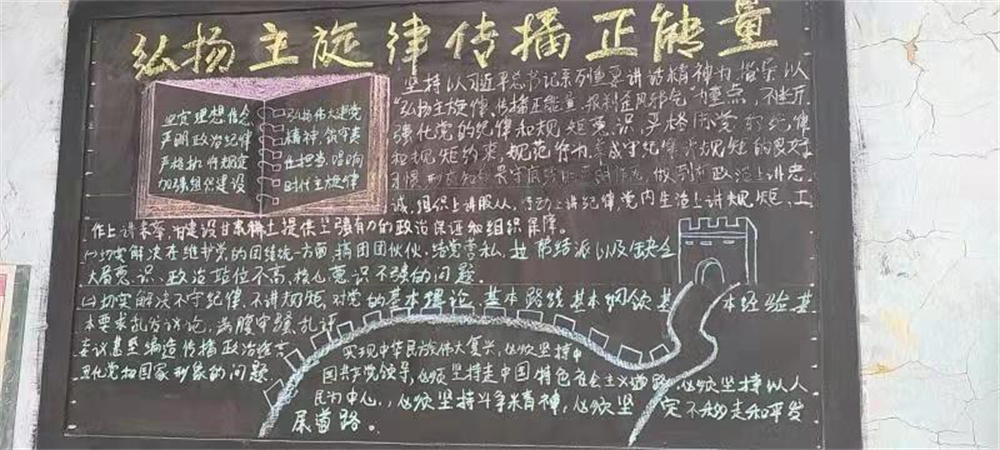 弘扬主旋律传播正能量
坚定理想信念
严明政治纪律
严格执行规定
加强组织建设
弘扬伟大建党
精神,做守责
任担当,唱响
时代主旋律
坚持以习近平总书记系列重要讲话精神为指导以
"弘扬主旋律、传播正能量、抵制歪风邪气"为重点,不断
强化党的纪律和规矩意识,严格
和规矩约束,规范行为,养成守纪律 规矩的良好
习惯 做到在政治上讲忠
诚、组织上讲服从、行动上讲纪律、党内生活上讲规矩、工
作上讲 建设 提供坚强有力的政治保证和组织保障。
切实解决在维护党的团结统一方面,搞团团伙伙、结党营私、拉帮结派以及缺乏
大局意识、政治站位不高,核心意识不强的问题。
切实解决不守纪律、不讲规矩,对党的基本理论、基本路线基本纲领基本经验基
本要求乱发议论,满腹牢骚乱评
妄议甚至编造传播政治谣言
丑化党和国家形象的问题
实现中华民族伟大复兴,必须坚持中
国共产党领导,必须坚持走中国特色社会主义道路,必须坚持以人
民为中心,必须坚持斗争精神,必须坚定不移走和平发
展道路。